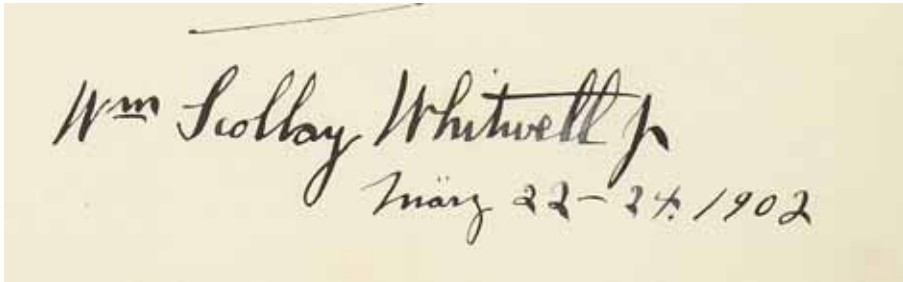 Wm Scollay Whitwell Jr
März 22-24. 1902